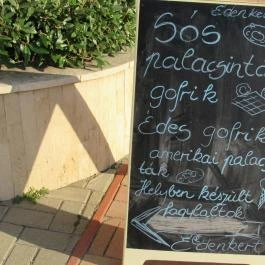 Édenke
Sós
palacsinta
gofrik
Édes gofrik
amerikai palac
ták
Helyben készült
fagylaltok
Édenkert